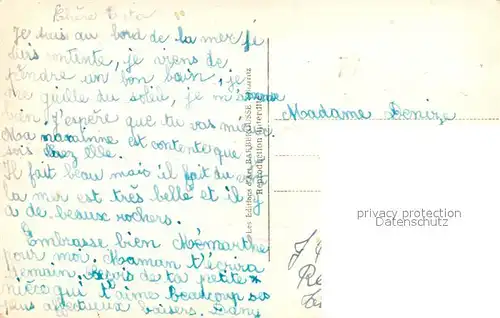 Chère Tata
Je suis au bord de la mer je
suis contente, je viens de
prendre un bon bain, je
me grille du soleil, je m'amuse
bien. J'espère que tu vas mieux.
Ma marainne est contente que
sois chez elle.
Il fait beau mais il fait du vent
la mer est très belle et il y
a de beaux rochers.
Embrasse bien Mémarthe
pour moi. Maman t'écrira
demain. Reçois de ta petite
nièce qui t'aime beaucoup ses
plus affectueux baisers. Dany
Les Editions d'Art
Reproduction Interdite
Madame Denize
privacy protection
Datenschutz